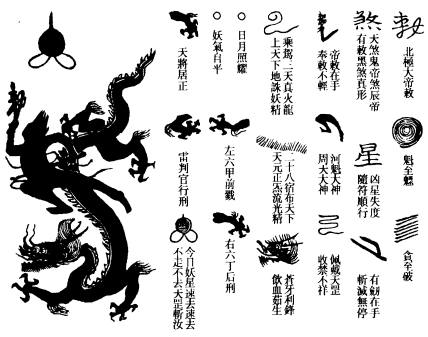 敕
北極大帝敕
魁至魒
貪至破
煞
天煞鬼帝煞辰帝
有敕黑煞真形
星
凶星失度
隨符順行
有劍在手
斬滅無停
帝敕在手
奉敕不輕
河魁大神
周天大神
佩戴天罡
收禁不祥
乘駕二天真火龍
上天下地誅妖精
二十八宿布天下
天元正炁流光精
蒼牙利鋒
飲血茹生
日月照耀
妖氣自平
左六甲前戮
右六丁后刑
天將居正
雷判官行刑
今日妖星速去速去
不疋不去天罡斬汝